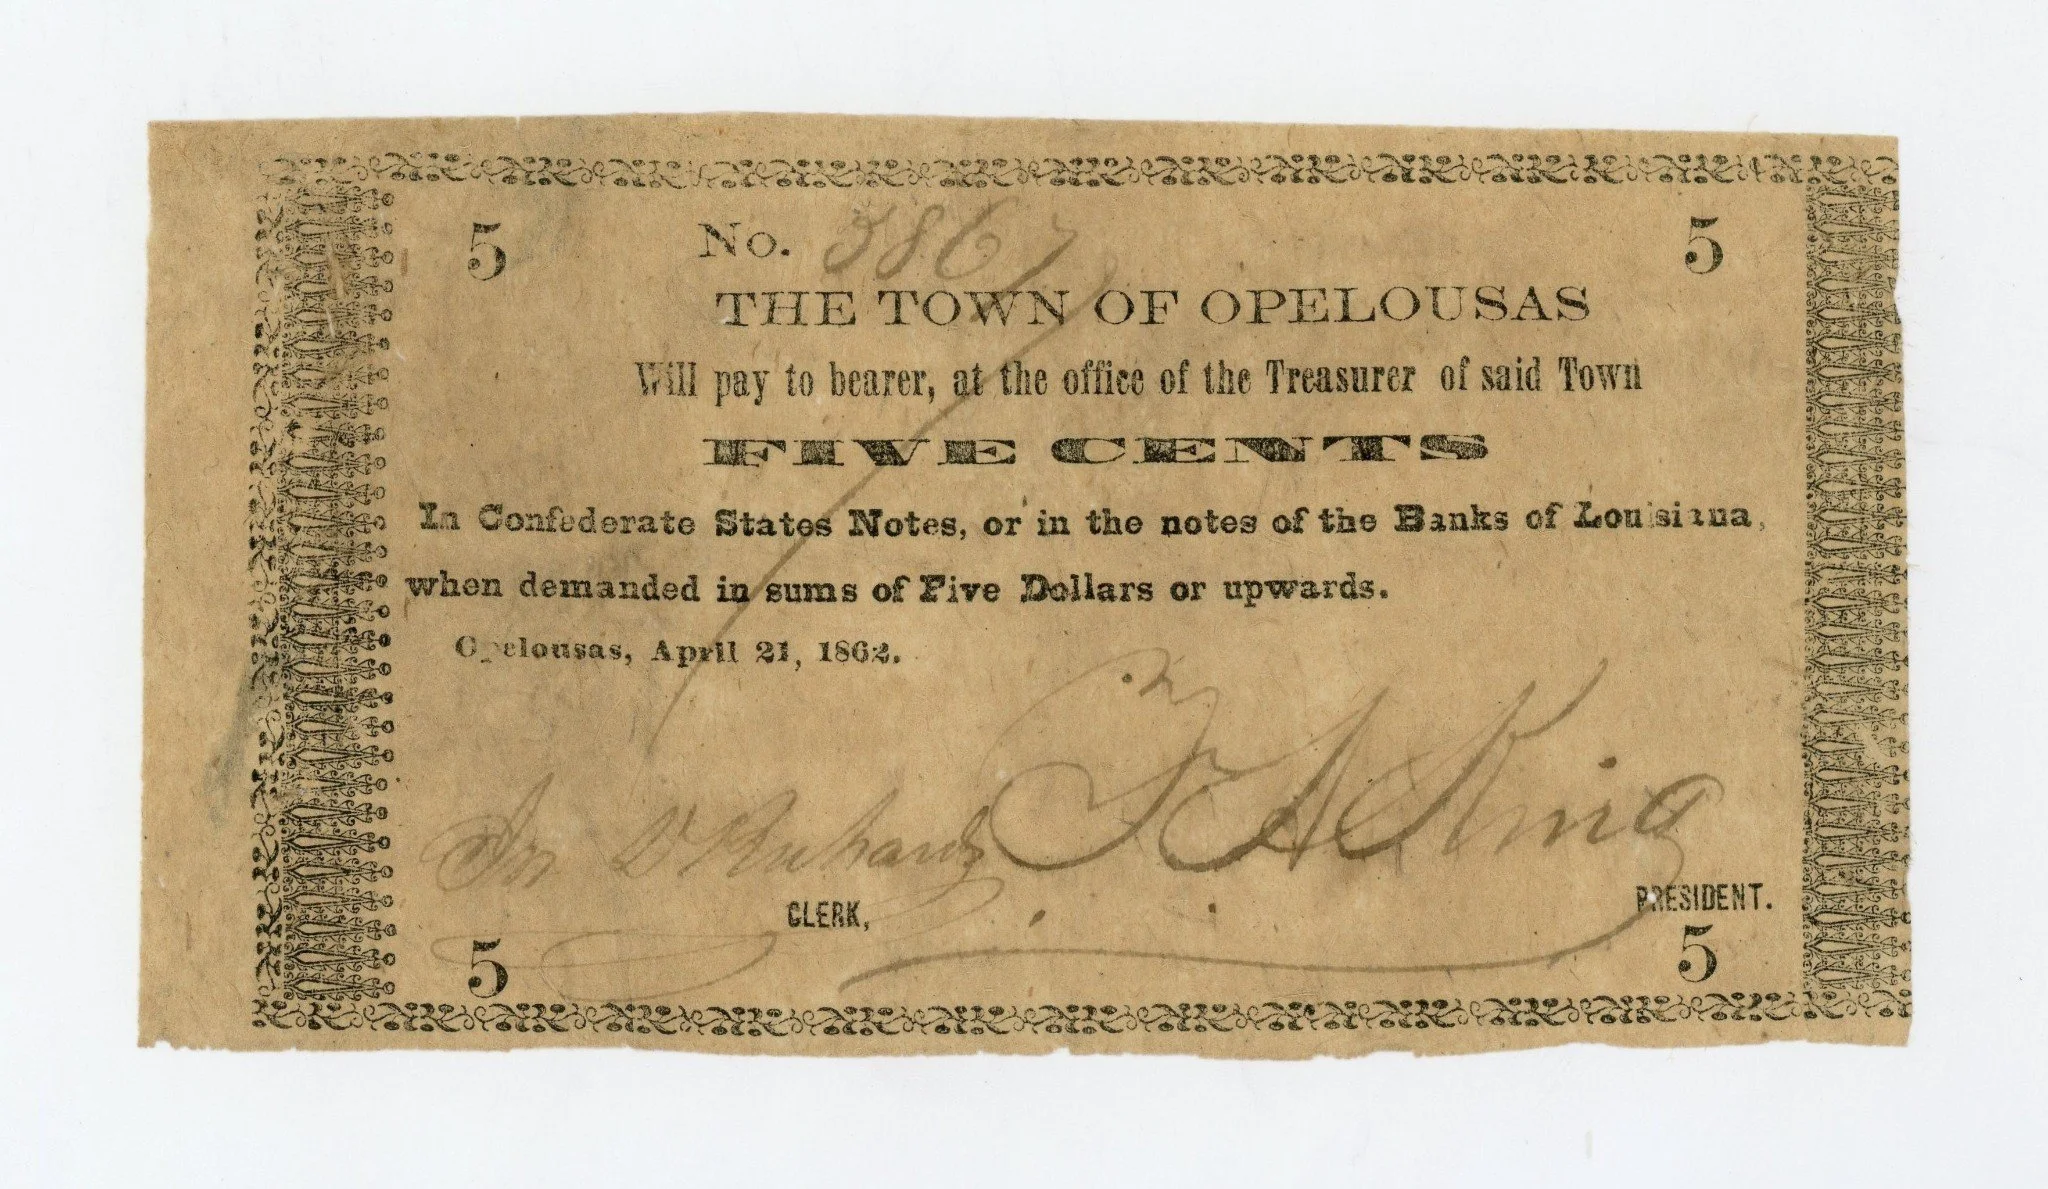 5 No. 5867 5
THE TOWN OF OPELOUSAS
Will pay to bearer, at the office of the Treasurer of said Town
FIVE CENTS
In Confederate States Notes, or in the notes of the Banks of Louisiana,
when demanded in sums of Five Dollars or upwards.
Opelousas, April 21, 1862.
King
CLERK, PRESIDENT.
5 5